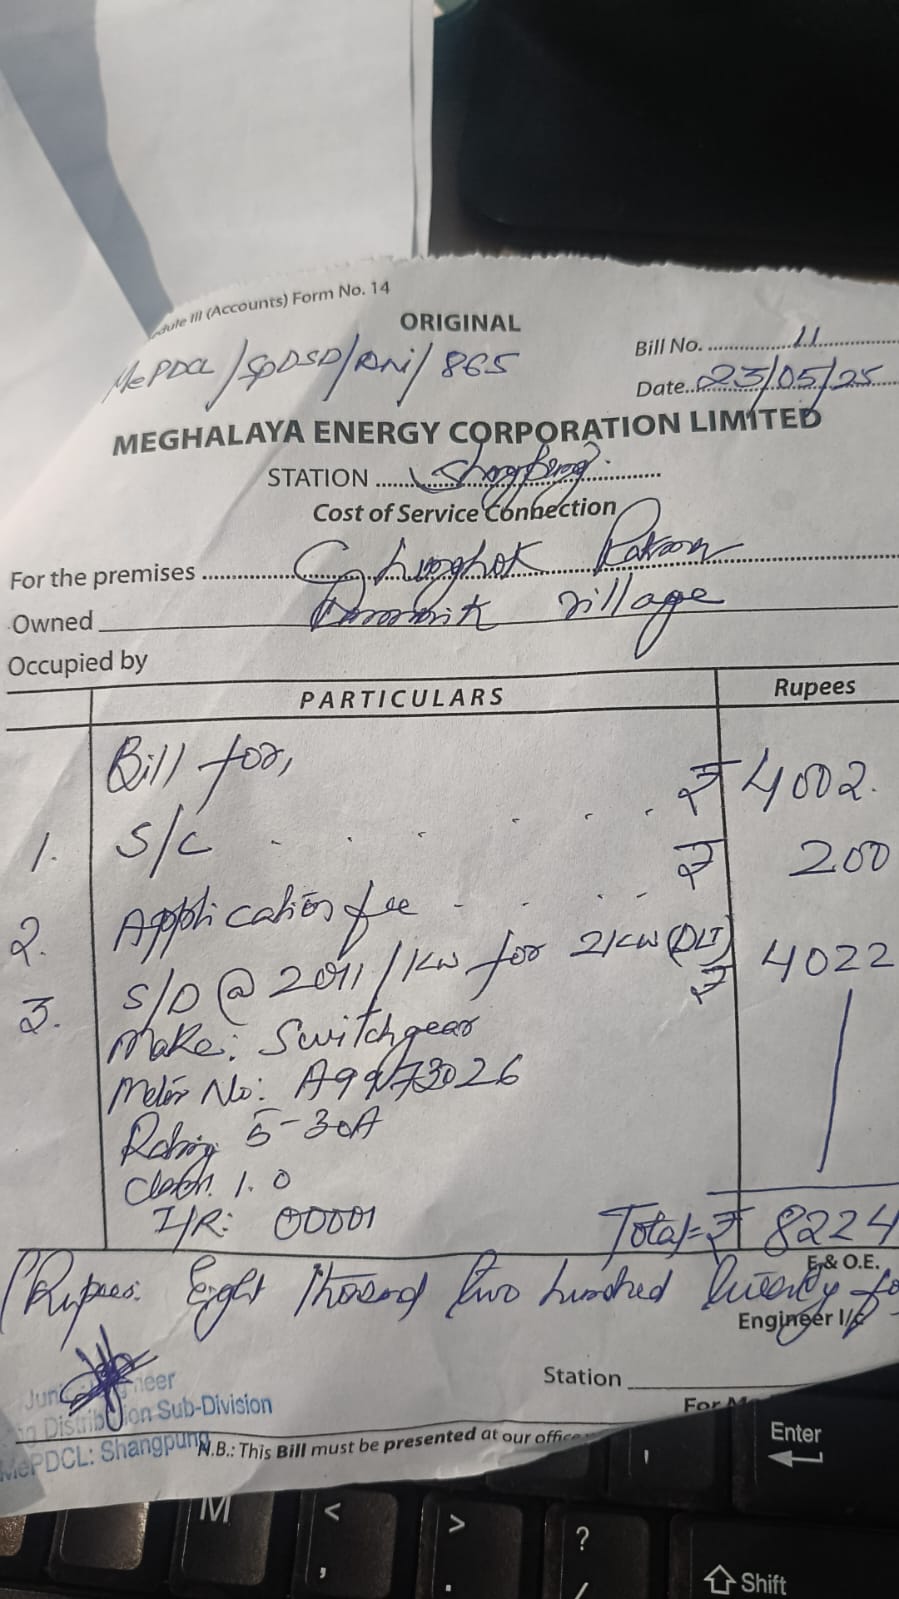 dule III (Accounts) Form No. 14
ORIGINAL
MePDCL/SPDSD/ /865
Bill No. 11
Date. 23/05/25
MEGHALAYA ENERGY CORPORATION LIMITED
STATION
Cost of Service Connection
For the premises
Owned village
Occupied by
PARTICULARS Rupees
Bill for,
1. S/C ₹ 4002.
2. Application fee ₹ 200
3. S/D @ 2011/KW for 2KW (DLT) ₹ 4022
Make: Switchgear
Meter No: A9973026
Rating 5-30A
1.0
I/R: 00001
Total=₹ 8224
E.& O.E.
(Rupees: Eight Thosend two hundred twenty fo
Engineer I/c
Station
Jun neer
Distribution Sub-Division
MePDCL: Shangpung
For Me
N.B.: This Bill must be presented at our office
Enter
M < > ?
, . /
Shift